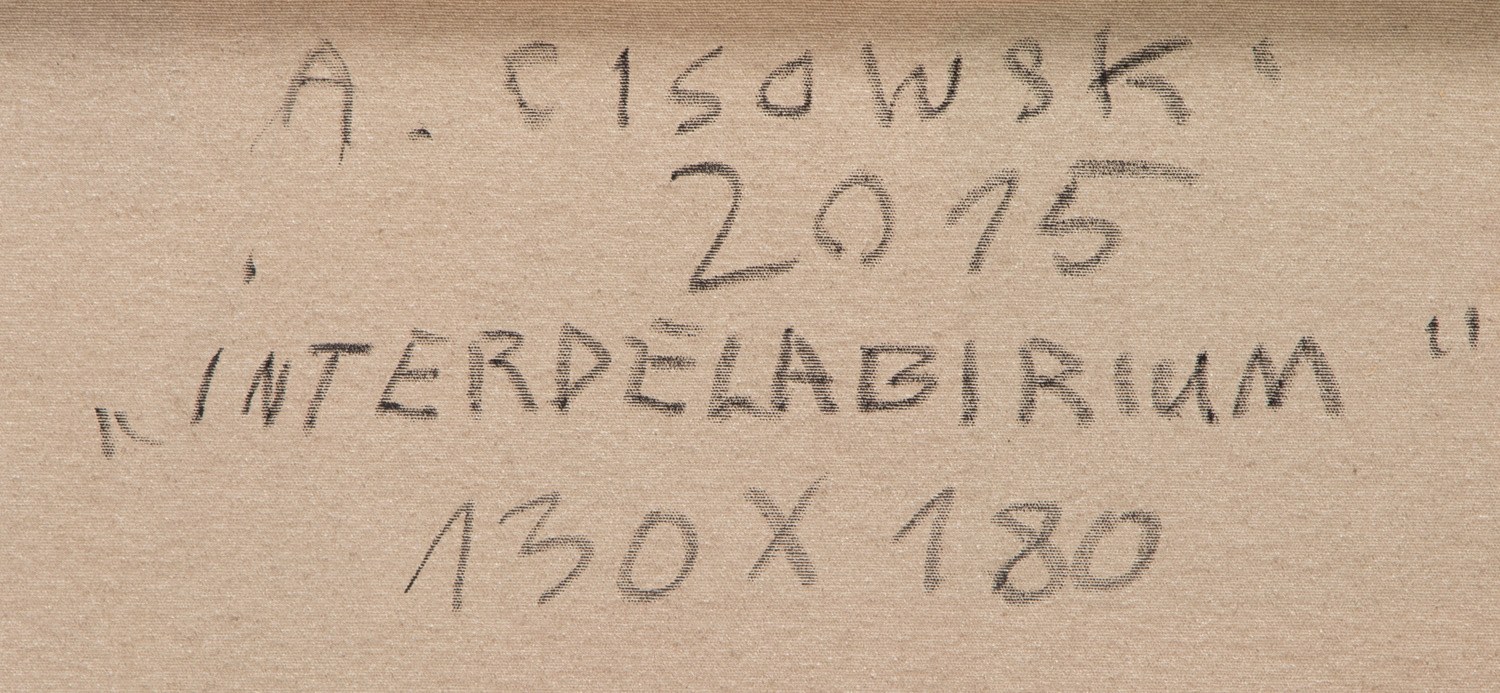 A. CISOWSKI
2015
„INTERDELABIRIUM"
130 X 180